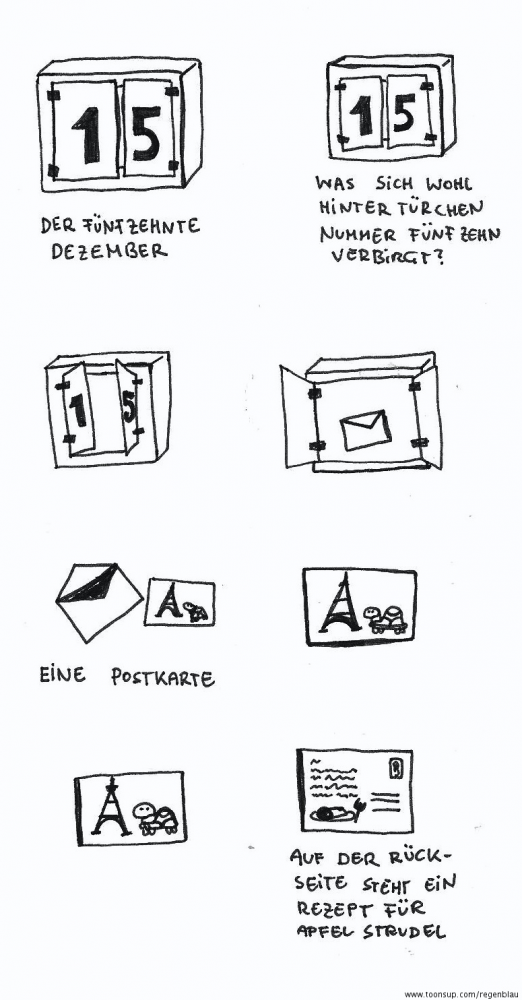 15
15
DER FÜNFZEHNTE
DEZEMBER
WAS SICH WOHL
HINTER TÜRCHEN
NUMMER FÜNFZEHN
VERBIRGT?
1 5
EINE POSTKARTE
AUF DER RÜCK-
SEITE STEHT EIN
REZEPT FÜR
APFEL STRUDEL
www.toonsup.com/regenblau